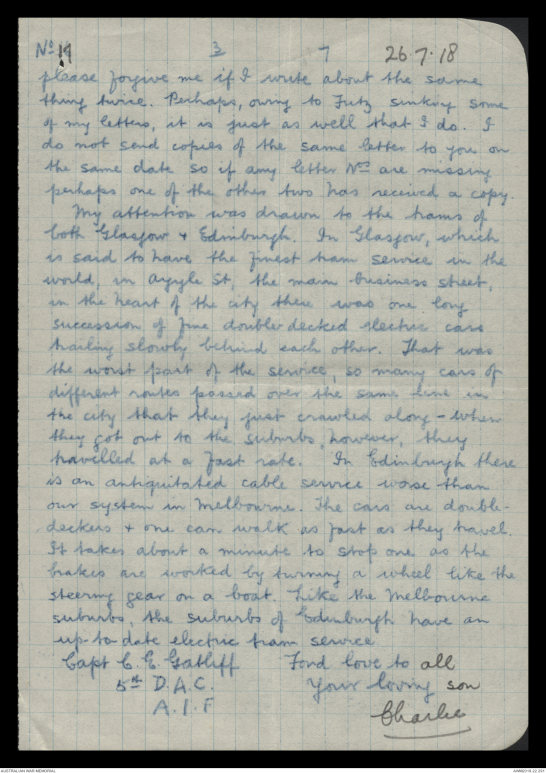 No 19 3 7 26.7.18
please forgive me if I write about the same
thing twice. Perhaps, owing to Fritz sinking some
of my letters, it is just as well that I do. I
do not send copies of the same letter to you on
the same date so if any letter Nos are missing
perhaps one of the other two has received a copy.
My attention was drawn to the trams of
both Glasgow & Edinburgh. In Glasgow, which
is said to have the finest tram service in the
world, in Argyle St, the main business street,
in the heart of the city there was one long
succession of fine double decked electric cars
trailing slowly behind each other. That was
the worst part of the service, so many cars of
different routes passed over the same line in
the city that they just crawled along - when
they got out to the suburbs, however, they
travelled at a fast rate. In Edinburgh there
is an antiquitated cable service worse than
our system in Melbourne. The cars are double-
deckers & one can walk as fast as they travel.
It takes about a minute to stop one as the
brakes are worked by turning a wheel like the
steering gear on a boat. Like the Melbourne
suburbs, the suburbs of Edinburgh have an
up-to-date electric tram service
Capt C. E. Gatliff Fond love to all
5th D.A.C. Your loving son
A.I.F Charlie
AUSTRALIAN WAR MEMORIAL